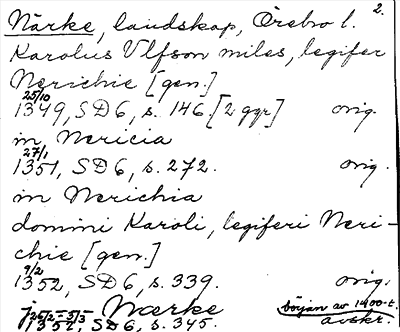 2.
Närke, landskap, Örebro l.
Karolus Ulfson miles, legifer
Nerichie [gen.]
25/10
1349, SD 6, s. 146. [2 ggr] orig.
in Nericia
27/1
1351, SD 6, s. 272. orig.
in Nerichia
domini Karoli, legiferi Neri-
chie [gen.]
9/2
1352, SD 6, s. 339. orig.
j Nærke början av 1400-t.
25/2-5/5
1352, SD 6, s. 345. avskr.